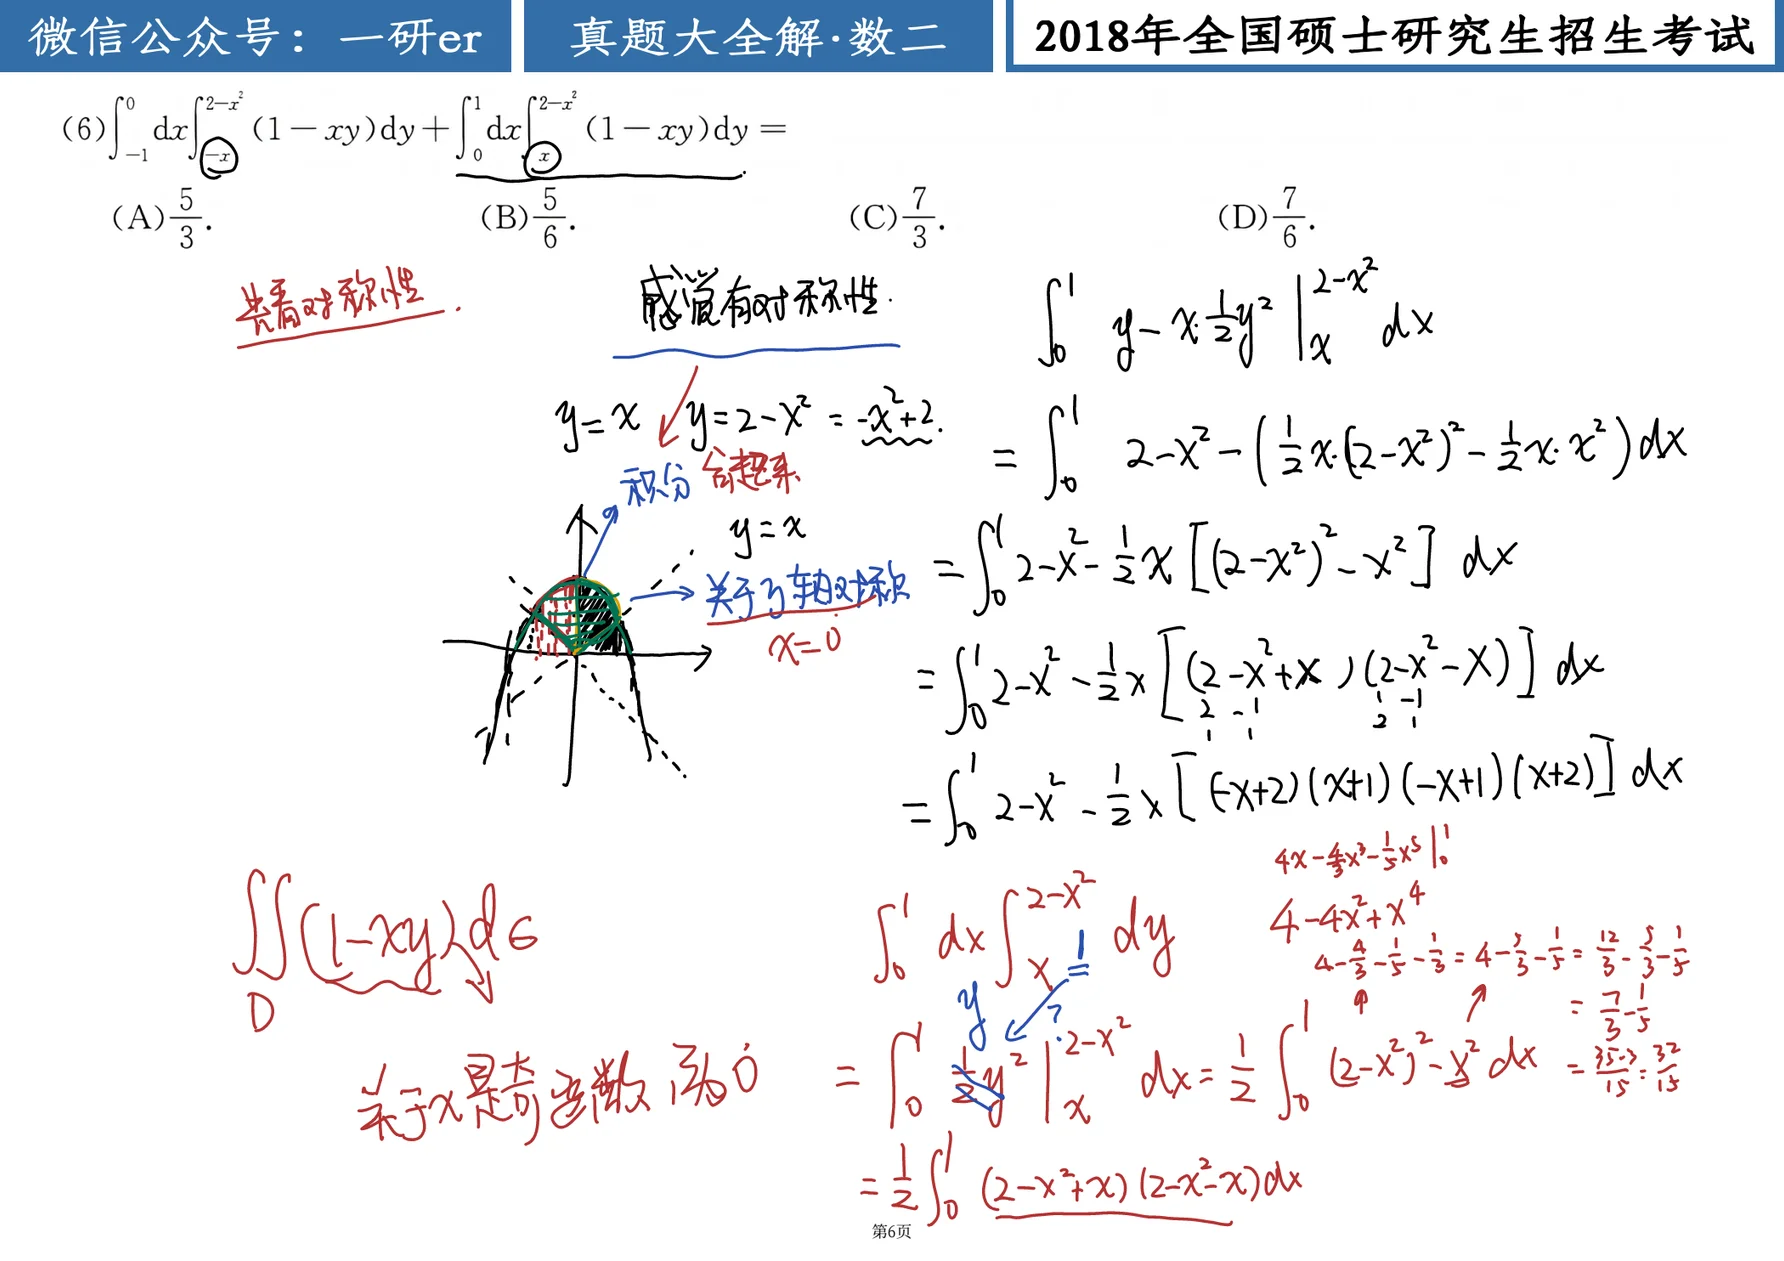 微信公众号：一研er
真题大全解·数二
2018年全国硕士研究生招生考试
(6)∫_{-1}^{0}dx∫_{-x}^{2-x²}(1-xy)dy+∫_{0}^{1}dx∫_{x}^{2-x²}(1-xy)dy=
(A)5/3.  (B)5/6.  (C)7/3.  (D)7/6.
看对称性.
感觉有对称性.
y=x  y=2-x²=-x²+2.
积分 合起来
y=x
关于y轴对称
x=0
∫_0^1 y-x·½y² |_x^{2-x²} dx
=∫_0^1 2-x²-(½x·(2-x²)²-½x·x²)dx
=∫_0^1 2-x²-½x[(2-x²)²-x²] dx
=∫_0^1 2-x²-½x[(2-x²+x)(2-x²-x)] dx
2 -1  1 -1
1 1  2 1
=∫_0^1 2-x²-½x[(-x+2)(x+1)(-x+1)(x+2)] dx
∬_D (1-xy)dσ
关于x是奇函数 为0
∫_0^1 dx∫_x^{2-x²} 1 dy
y ?
=∫_0^1 ½y² |_x^{2-x²} dx=½∫_0^1 (2-x²)²-x² dx
=½∫_0^1 (2-x²+x)(2-x²-x)dx
4x-4/3x³-1/5x⁵|_0^1
4-4x²+x⁴
4-4/3-1/5-1/3=4-5/3-1/5=12/3-5/3-1/5
=7/3-1/5
=35-3/15=32/15
第6页